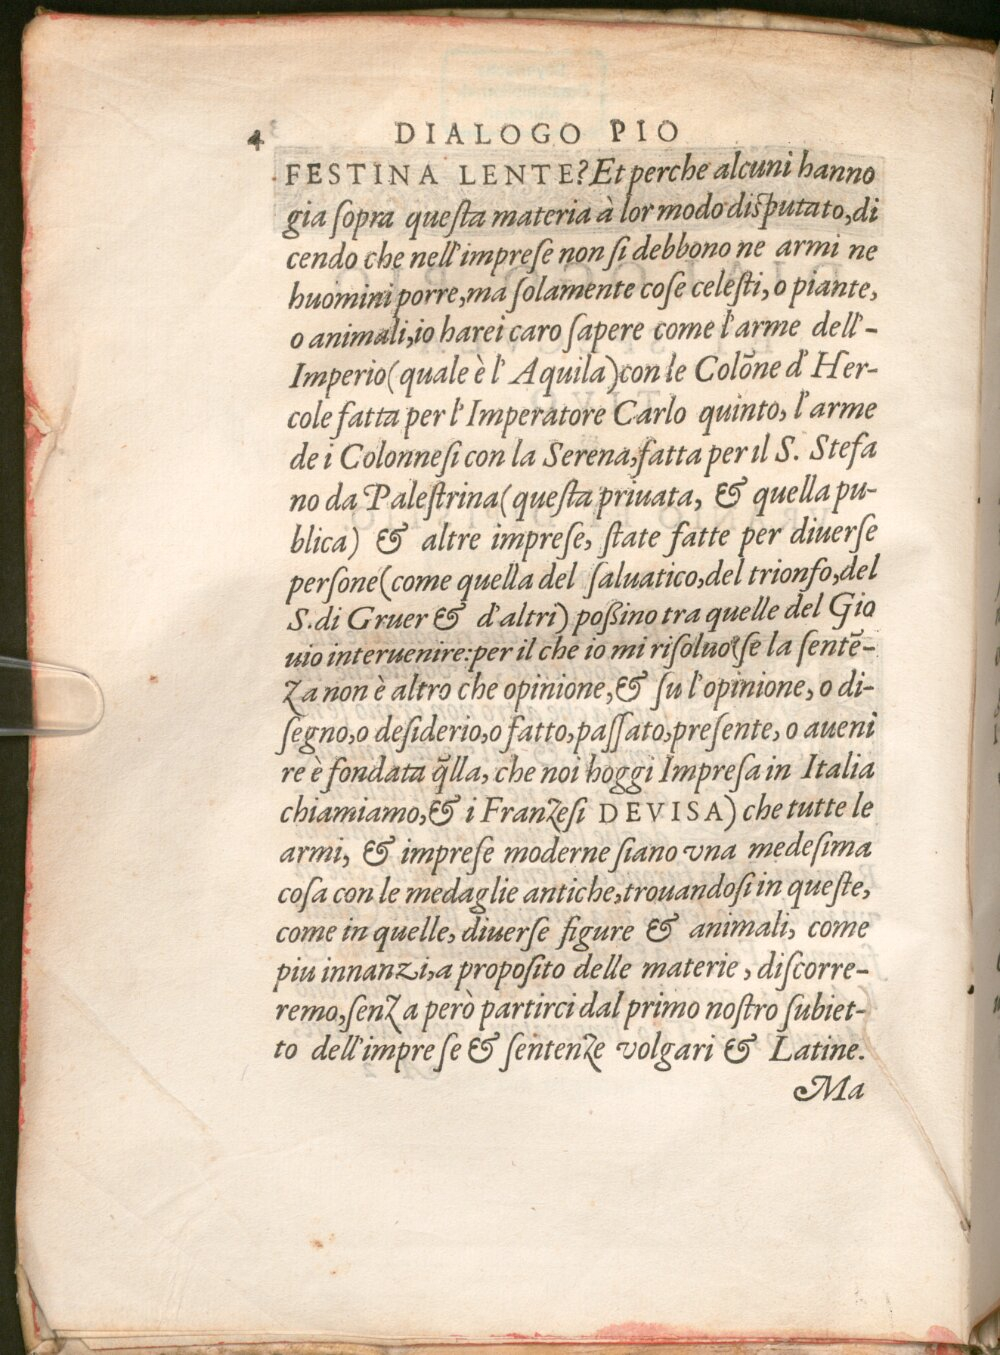 4 DIALOGO PIO
FESTINA LENTE? Et perche alcuni hanno
gia ſopra queſta materia à lor modo diſputato, di
cendo che nell'impreſe non ſi debbono ne armi ne
huomini porre, ma ſolamente coſe celeſti, o piante,
o animali, io harei caro ſapere come l'arme dell'-
Imperio (quale è l' Aquila) con le Colōne d' Her-
cole fatta per l' Imperatore Carlo quinto, l'arme
de i Colonneſi con la Serena, fatta per il S. Stefa
no da Paleſtrina (queſta priuata, & quella pu-
blica) & altre impreſe, ſtate fatte per diuerſe
perſone (come quella del ſaluatico, del trionfo, del
S. di Gruer & d'altri) poßino tra quelle del Gio
uio interuenire: per il che io mi riſoluo (ſe la ſentē-
za non è altro che opinione, & ſu l'opinione, o di-
ſegno, o deſiderio, o fatto, paſſato, preſente, o aueni
re è fondata q̄lla, che noi hoggi Impreſa in Italia
chiamiamo, & i Franzeſi DEVISA) che tutte le
armi, & impreſe moderne ſiano vna medeſima
coſa con le medaglie antiche, trouandoſi in queſte,
come in quelle, diuerſe figure & animali, come
piu innanzi, a propoſito delle materie, diſcorre-
remo, ſenza però partirci dal primo noſtro ſubiet-
to dell'impreſe & ſentenze volgari & Latine.
Ma